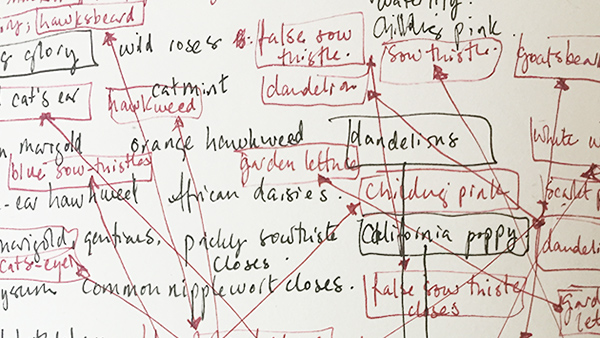 waterlily.
Childing pink.
ory, hawksbeard
g glory
wild roses
false sow
thistle.
sow thistle.
goatsbeard
cat's ear
catmint
hawkweed
dandelion
n, marigold
orange hawkweed
dandelions
white w
blue sow-thistles
garden lettuce
-ear hawkweed
African daisies.
Childing pink
Scarlet p
marigold, gentians,
prickly sowthistle
closes.
California poppy
dandelion
cats-eye
yssum
common nipplewort closes.
false sow thistle
closes
garden
lett